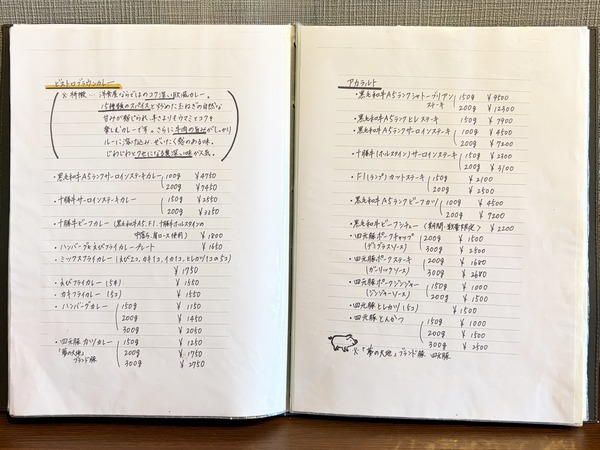 ビストロブラウンカレー
※特徴… 洋食屋ならではのコク深い欧風カレー。
15種類のスパイスと炒めた玉ねぎの自然な
甘みが感じられ、辛さよりもウマミとコクを
楽しむカレーです。さらに牛肉の旨みがしっかり
ルーに溶け込み、ぜいたく感のある味。
じわじわとクセになる奥深い味が人気。
・黒毛和牛A5ランクサーロインステーキカレー 100g ¥4750
200g ¥7450
・十勝牛サーロインステーキカレー 150g ¥2550
200g ¥3250
・十勝牛ビーフカレー (黒毛和牛A5、F1、十勝牛ホルスタインの
肩ロース使用) ¥1800
・ハンバーグ&えびフライカレープレート ¥1650
・ミックスフライカレー (えび2コ、カキ1コ、イカ1コ、ヒレカツ1コの5コ)
¥1750
・えびフライカレー (5本) ¥1550
・カキフライカレー (5コ) ¥1550
・ハンバーグカレー 150g ¥1150
200g ¥1450
300g ¥2050
・四元豚カツカレー 150g ¥1250
「夢の大地」 200g ¥1750
ブランド豚 300g ¥2750
アカラルト
・黒毛和牛A5ランクシャトーブリアン 150g ¥9500
ステーキ 200g ¥12300
・黒毛和牛A5ランクヒレステーキ 150g ¥7900
・黒毛和牛A5ランクサーロインステーキ 100g ¥4500
200g ¥7200
・十勝牛(ホルスタイン)サーロインステーキ 150g ¥2300
200g ¥3100
・F1(ランプ)カットステーキ 150g ¥2100
200g ¥2500
・黒毛和牛A5ランクビーフカツ 100g ¥4500
200g ¥7200
・黒毛和牛ビーフシチュー (期間・数量限定) ¥2200
・四元豚ポークチャップ 200g ¥1500
(デミグラスソース) 300g ¥2500
・四元豚ポークステーキ 200g ¥1680
(ガーリックソース) 300g ¥2680
・四元豚ポークジンジャー 150g ¥1000
(ジンジャーソース) 200g ¥1500
・四元豚ヒレカツ (5コ) ¥1500
・四元豚とんかつ 150g ¥1000
200g ¥1500
300g ¥2500
※「夢の大地」ブランド豚 四元豚